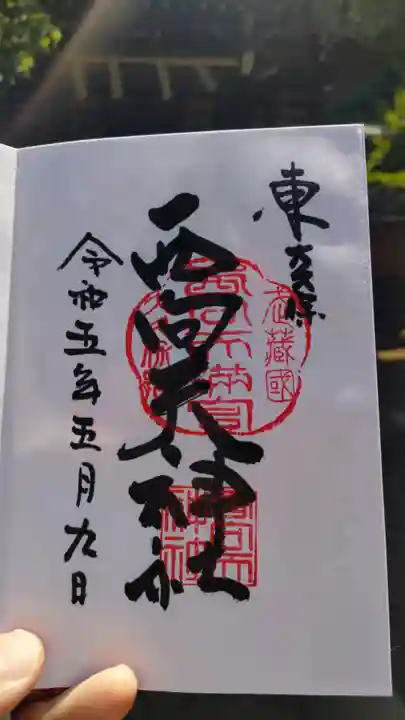 東大久保
西向天神社
武藏國
令和五年五月九日